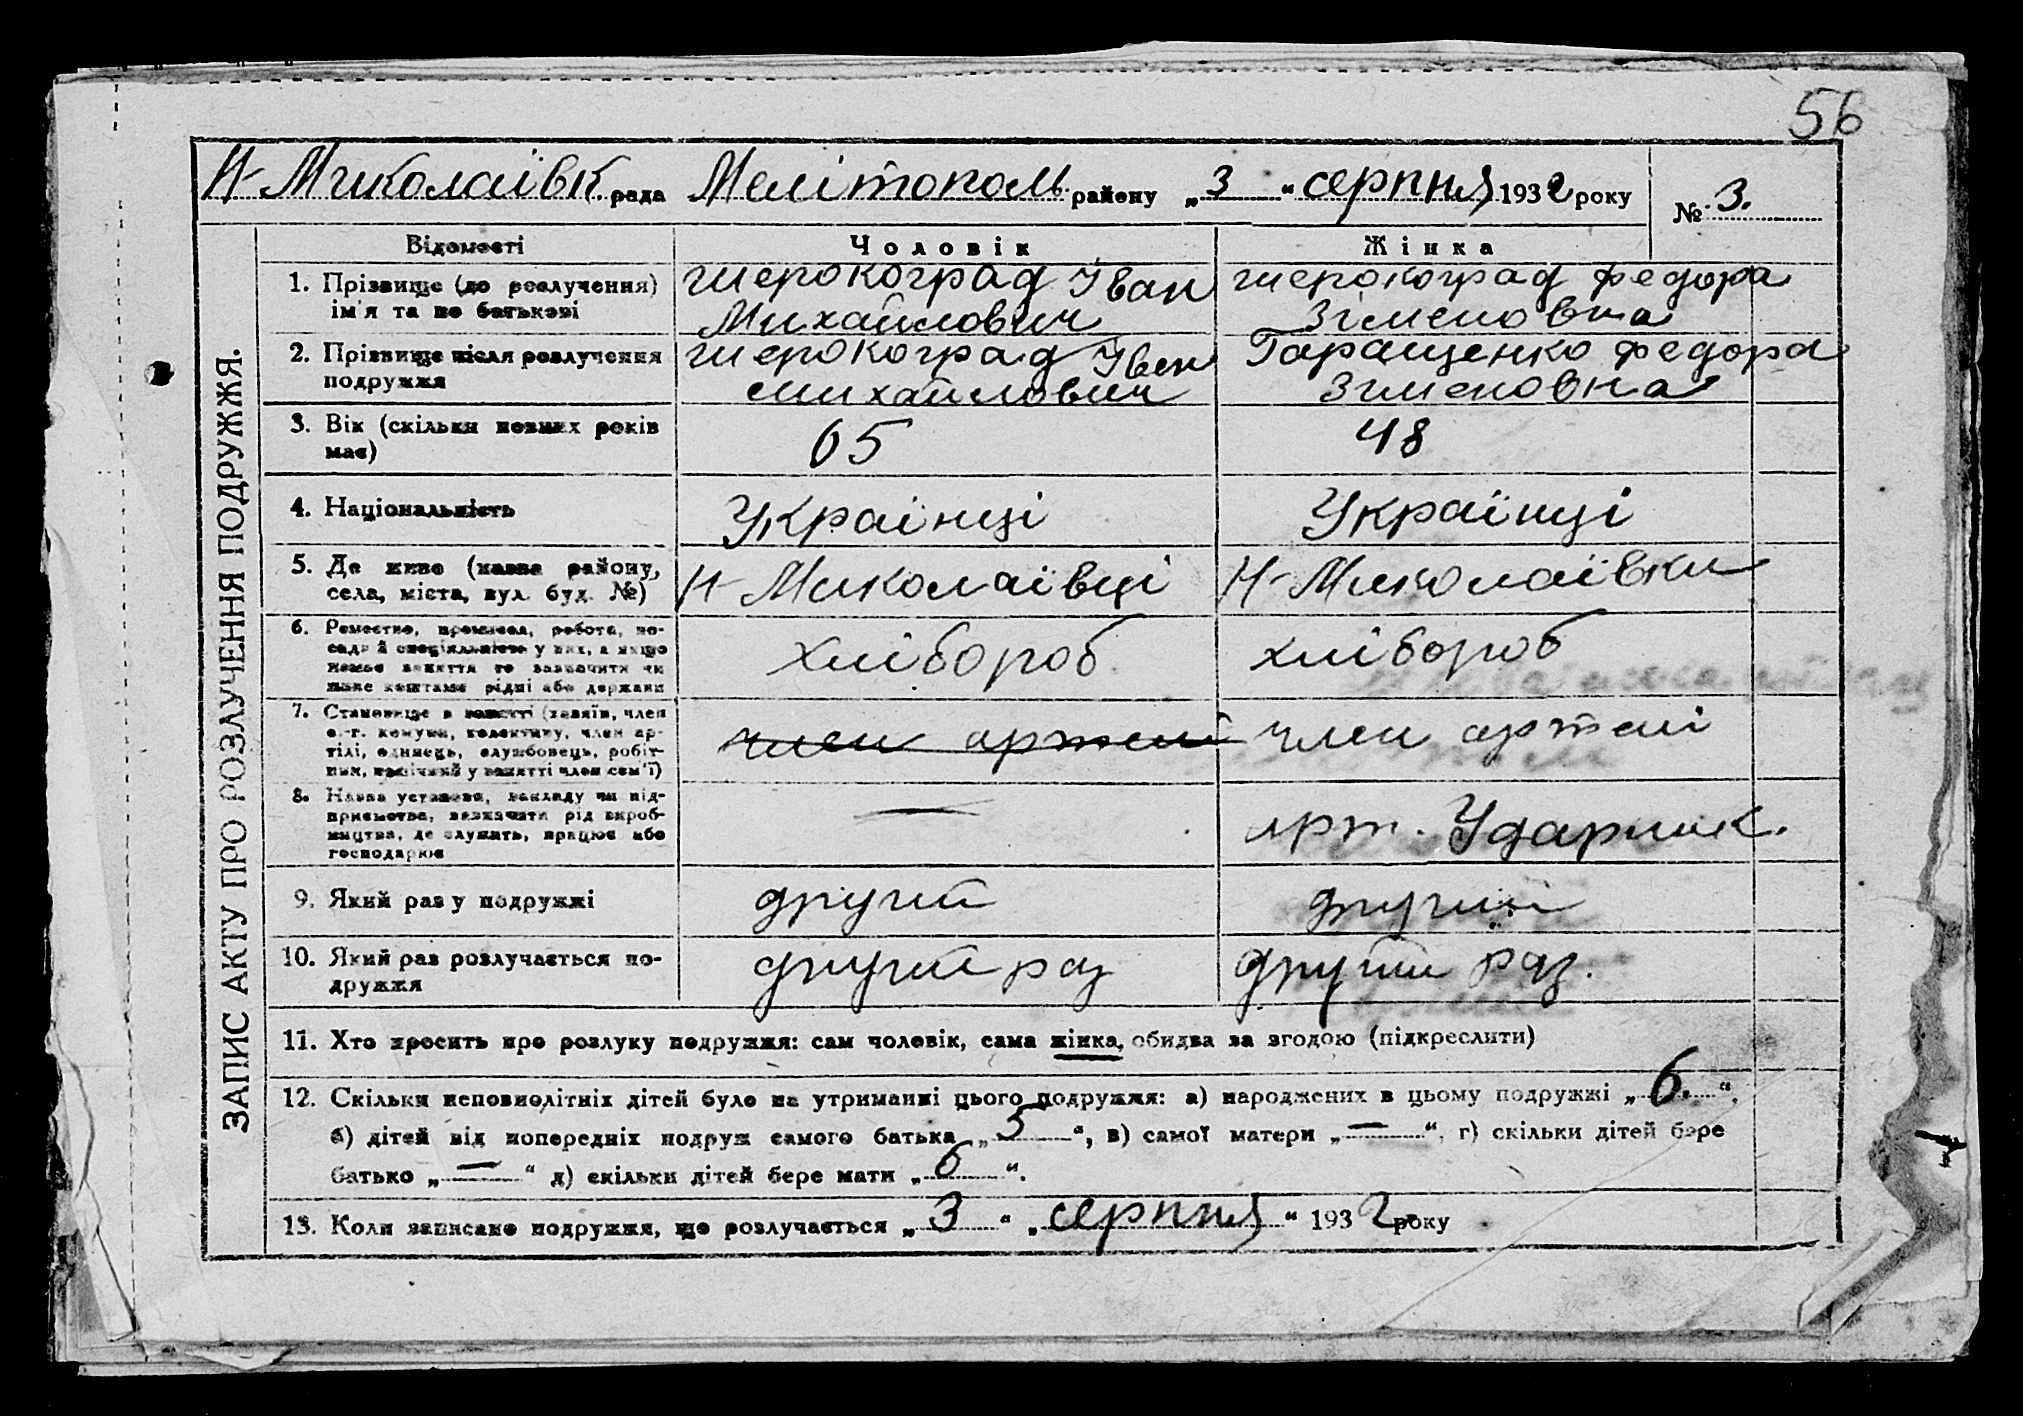 56
Н-Миколаївк. рада Мелітополь. району „3“ серпня 1932 року № 3.
ЗАПИС АКТУ ПРО РОЗЛУЧЕННЯ ПОДРУЖЖЯ.
Відомості Чоловік Жінка
1. Прізвище (до розлучення) ім'я та по батькові
широкоград Іван
Михайлович
широкоград Федора
Зіменовна
2. Прізвище після розлучення подружжя
широкоград Іван
михайлович
Гаращенко Федора
Зіменовна
3. Вік (скільки повних років має) 65 48
4. Національність Українці Українці
5. Де живе (назва району, села, міста, вул. буд. №) Н-Миколаївці Н-Миколаївки
6. Ремество, промисел, робота, посада й спеціяльність у них, а якщо немає заняття то зазначити чи живе коштами рідні або держави
хлібороб хлібороб
7. Становище в занятті (хазяїн, член с.-г. комуни, колективу, член артілі, одинець, службовець, робітник, помічний у занятті член сем'ї)
член артелі член артелі
8. Назва установи, закладу чи підприємства, зазначити рід виробництва, де служить, працює або господарює
— арт. Ударник.
9. Який раз у подружжі другий другий
10. Який раз розлучається подружжя другий раз другий раз.
11. Хто просить про розлуку подружжя: сам чоловік, сама жінка, обидва за згодою (підкреслити)
12. Скільки неповнолітніх дітей було на утриманні цього подружжя: а) народжених в цьому подружжі „6.“,
б) дітей від попередніх подруж самого батька „5“, в) самої матери „—“, г) скільки дітей бере
батько „—“ д) скільки дітей бере мати „6“.
13. Коли записано подружжя, що розлучається „3“ „серпня“ 1932 року